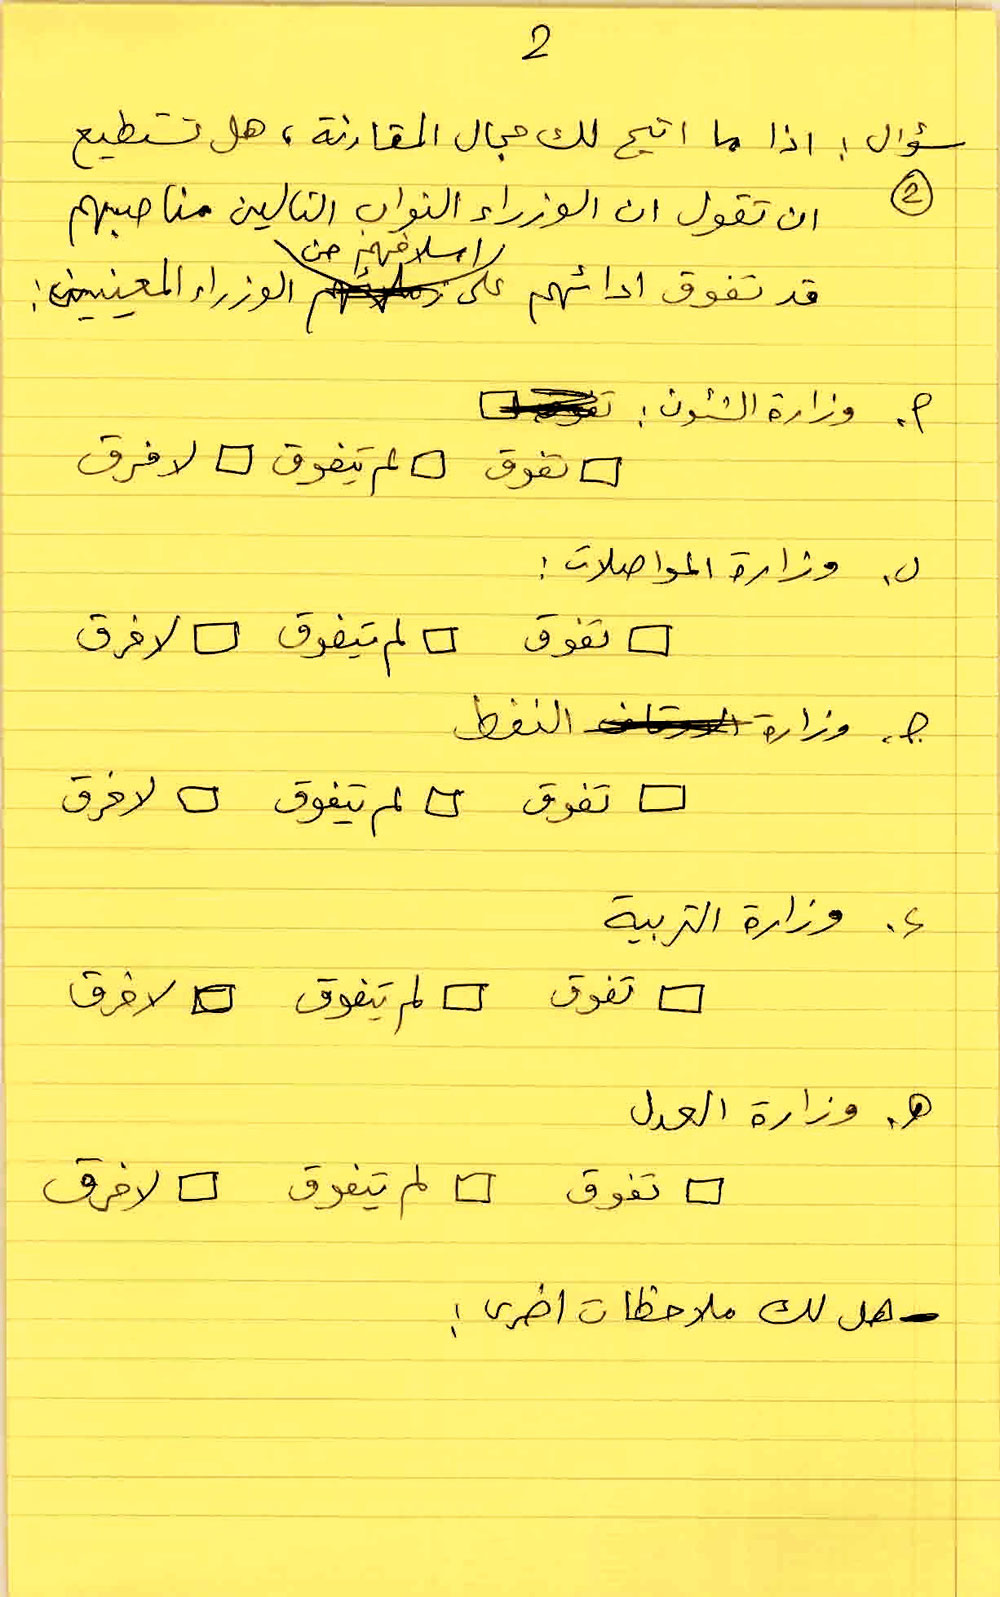 2
سؤال : اذا ما اتيح لك مجال المقارنة ، هل تستطيع
② ان تقول ان الوزراء النواب التالين مناصبهم
اسلافهم من
قد تفوق ادائهم على زملائهم الوزراء المعينين :
أ. وزارة الشئون :
□ تفوق □ لم يتفوق □ لا فرق
ب. وزارة المواصلات :
□ تفوق □ لم يتفوق □ لا فرق
ج. وزارة الاوقاف النفط
□ تفوق □ لم يتفوق □ لا فرق
د. وزارة التربية
□ تفوق □ لم يتفوق □ لا فرق
هـ. وزارة العدل
□ تفوق □ لم يتفوق □ لا فرق
- هل لك ملاحظات اخرى :